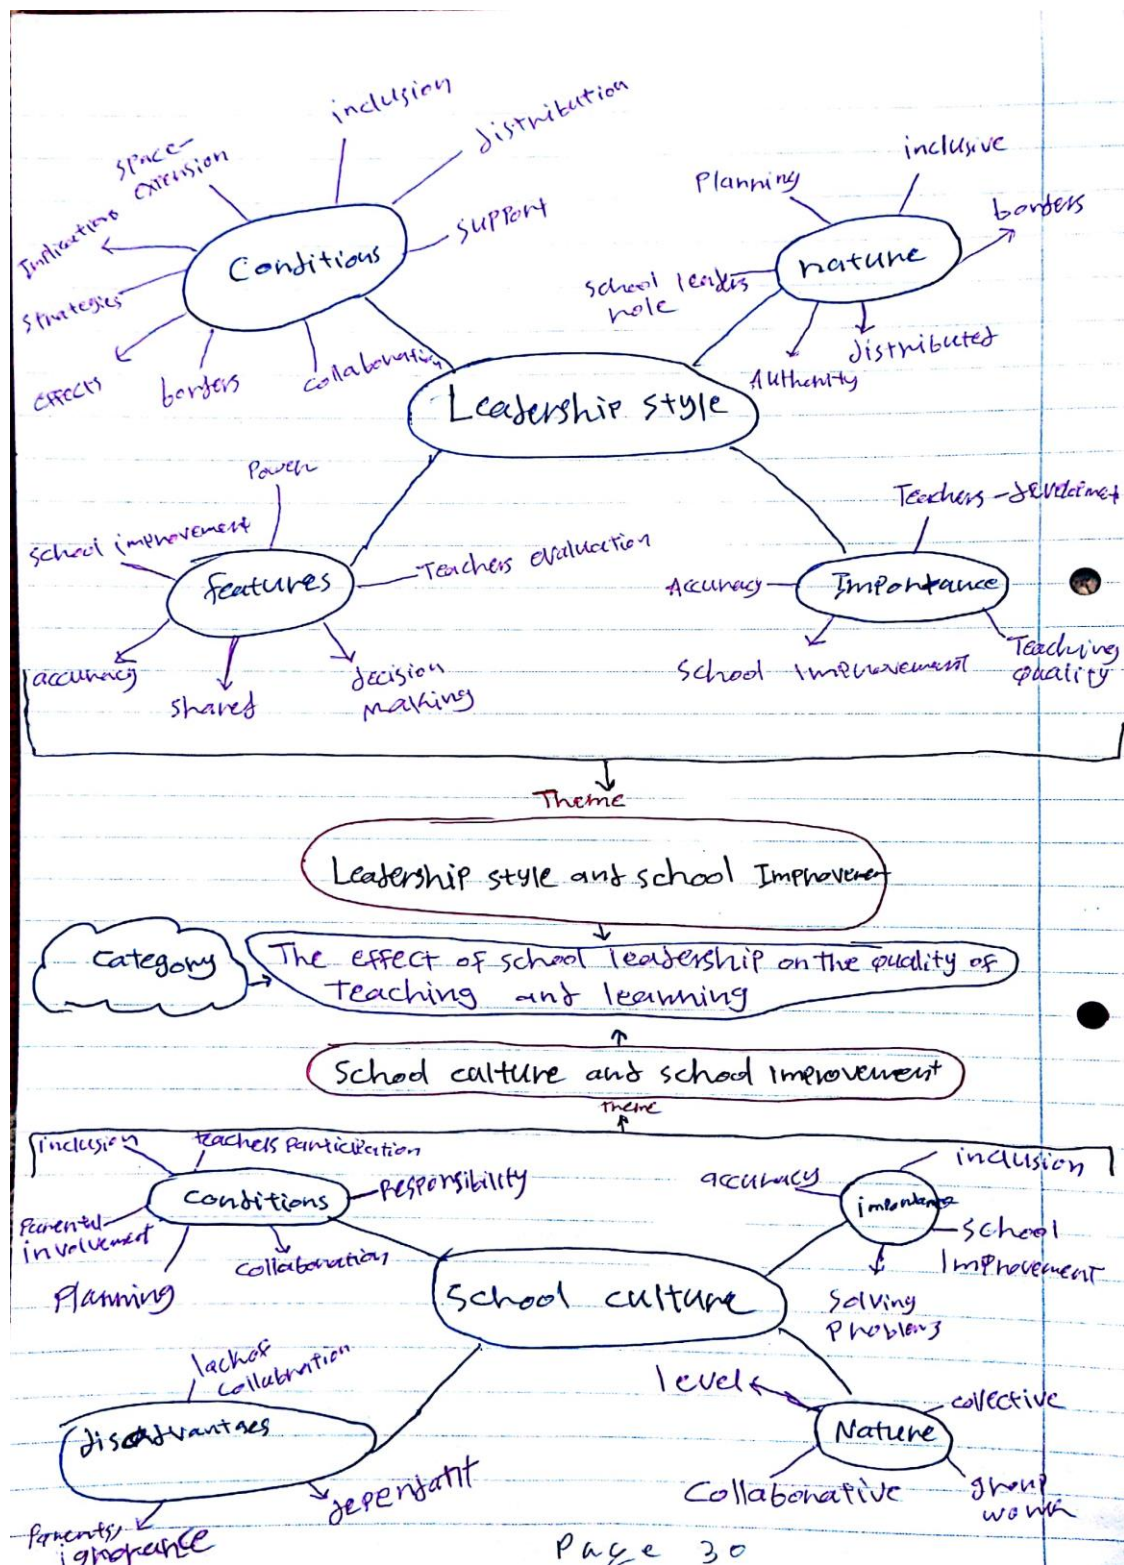 inclusion
distribution
space-
extension
Implications
Support
Conditions
Strategies
effects
borders
collaboration
Planning
inclusive
borders
nature
School leaders
role
distributed
Authority
Leadership style
Power
School improvement
Teachers evaluation
features
accuracy
shared
decision
making
Teachers - develoimet
Accuracy
Importance
School Improvement
Teaching
quality
Theme
Leadership style and school Improvement
Category
The effect of school leadership on the quality of
teaching and learning
School culture and school improvement
theme
inclusion
teachers participation
Responsibility
Conditions
Parental
involvement
collaboration
Planning
accuracy
inclusion
importance
School
Improvement
Solving
Problems
School culture
lack of
collabration
disadvantaes
dependant
Parents,
ignorance
level
collective
Nature
Collaborative
group
work
Page 30